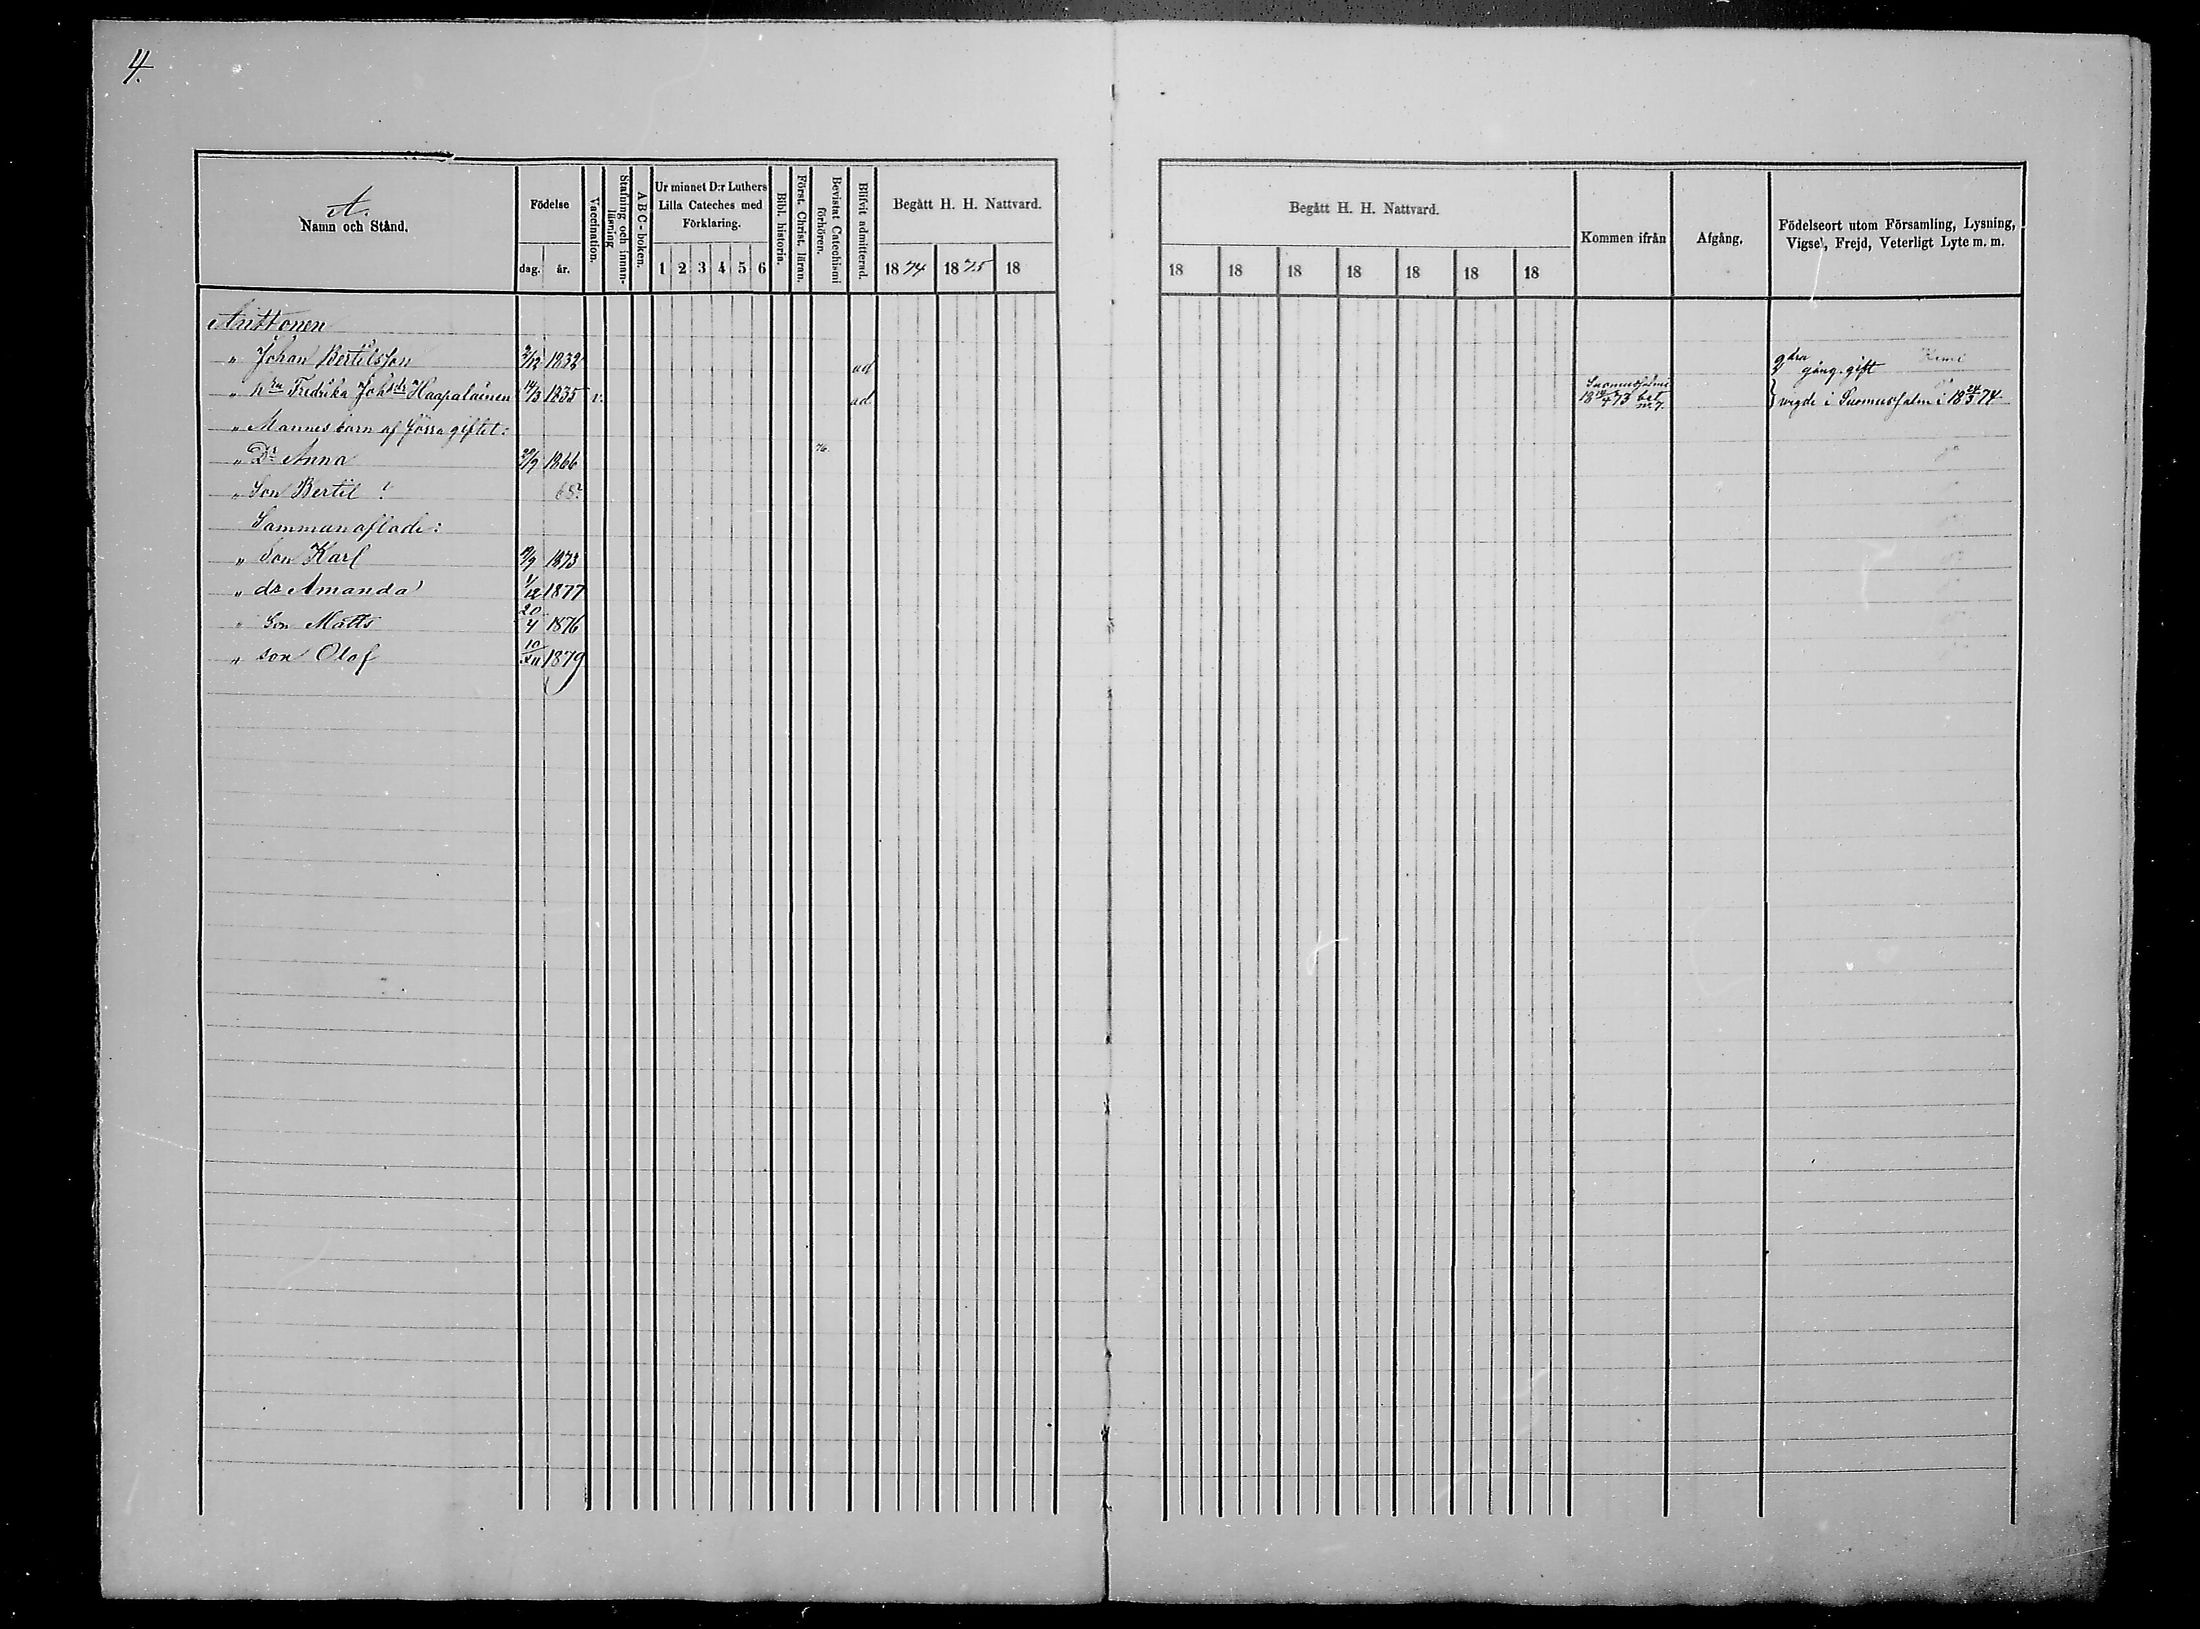 4.
A.
Namn och Stånd.
Födelse
dag. år.
Vaccination.
Stafning och innan-läsning
ABC-boken.
Ur minnet D:r Luthers
Lilla Cateches med
Förklaring.
1 2 3 4 5 6
Bibl. historia.
Först. Christ. läran.
Bevistat Catechismi förhören.
Blifvit admitterad.
Begått H. H. Nattvard.
1874 1875 18
Begått H. H. Nattvard.
18 18 18 18 18 18 18
Kommen ifrån
Afgång.
Födelseort utom Församling, Lysning,
Vigsel, Frejd, Veterligt Lyte m. m.
Anttonen
" Johan Bertilsson 2/12 1832 ad 2dra gång. gift Kemi
" hru Fredrika Johsdr Haapalainen 14/3 1835 v. ad. Suomusjalmi 18 73 bet n:o 7. } vigde i Suomusjalmi 18 24/3 74
" Mannes barn af förra giftet:
" Dr Anna 1866 76.
" Son Bertil ! 68?
Sammanaflade:
" Son Karl 1873
" dr Amanda 1/12 1877
" Son Matts 20/4 1876
" son Olof 10/XII 1879